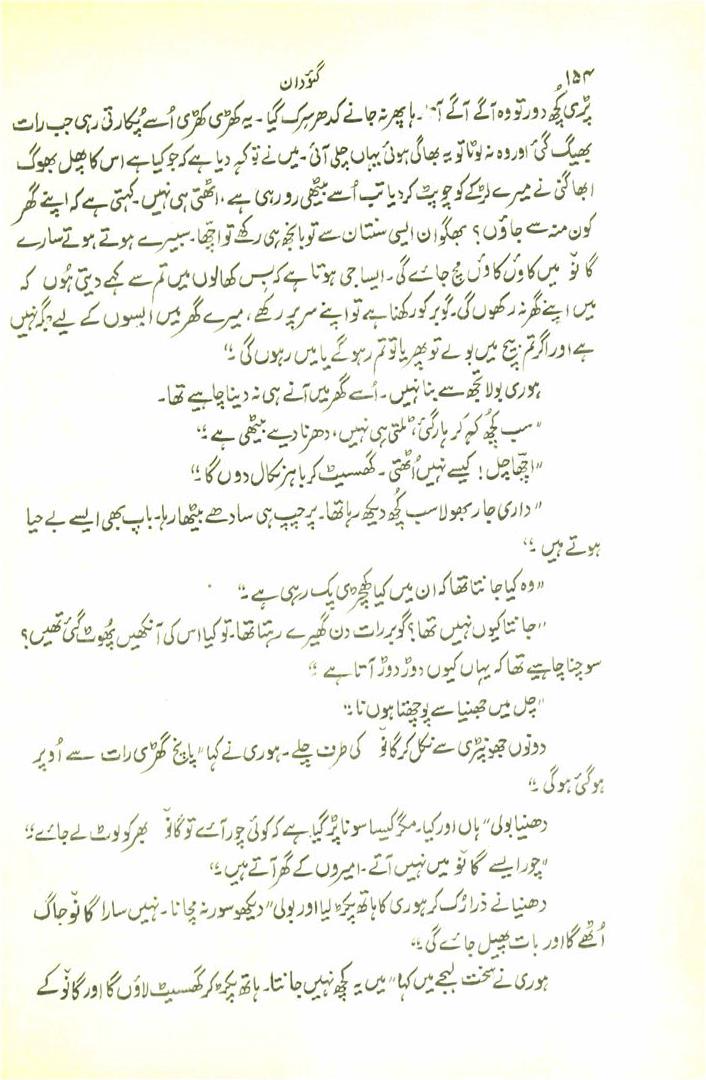 ۱۵۴
گئودان
پڑی کچھ دور تو وہ آگے آگے آیا۔ پھر نہ جانے کدھر سرک گیا۔ یہ کھڑی کھڑی اُسے پکارتی رہی جب رات
بھیگ گئی اور وہ نہ لوٹا تو یہ بھاگی ہوئی یہاں چلی آئی۔ میں نے تو کہہ دیا ہے کہ جو کیا ہے اس کا پھل بھوگ
ابھاگنی نے میرے لڑکے کو چوپٹ کر دیا تب اُسے بیٹھی رو رہی ہے، اٹھتی ہی نہیں۔ کہتی ہے کہ اپنے گھر
کون منہ سے جاؤں؟ بھگوان ایسی سنتان سے تو بانجھ ہی رکھے تو اچھا۔ سبیرے ہوتے ہوتے سارے
گانوٗ میں کاؤں کاؤں مچ جائے گی۔ ایسا جی ہوتا ہے کہ بس کھالوں میں تم سے کہے دیتی ہوں کہ
میں اپنے گھر نہ رکھوں گی۔ گوبر کو رکھنا ہے تو اپنے سر پر رکھے، میرے گھر میں ایسوں کے لیے جگہ نہیں
ہے اور اگر تم بیچ میں بولے تو پھر یا تو تم رہو گے یا میں رہوں گی۔“
ہوری بولا تجھ سے بنا نہیں۔ اُسے گھر میں آنے ہی نہ دینا چاہیے تھا۔
”سب کچھ کہہ کر ہار گئی، ٹلتی ہی نہیں، دھرنا دیے بیٹھی ہے۔“
”اچھا چل! کیسے نہیں اُٹھتی۔ گھسیٹ کر باہر نکال دوں گا۔“
”داری جار بھولا سب کچھ دیکھ رہا تھا۔ پر چپ ہی سادھے بیٹھا رہا۔ باپ بھی ایسے بے حیا
ہوتے ہیں۔“
”وہ کیا جانتا تھا کہ ان میں کیا کھچڑی پک رہی ہے۔“
”جانتا کیوں نہیں تھا؟ گوبر رات دن گھیرے رہتا تھا۔ تو کیا اس کی آنکھیں پھوٹ گئی تھیں؟
سوچنا چاہیے تھا کہ یہاں کیوں دوڑ دوڑ آتا ہے۔“
”چل میں جھنیا سے پوچھتا ہوں نا۔“
دونوں جھونپڑی سے نکل کر گانوٗ کی طرف چلے۔ ہوری نے کہا ”پانچ گھڑی رات سے اُوپر
ہو گئی ہوگی۔“
دھنیا بولی ”ہاں اور کیا۔ مگر کیسا سوتا پڑ گیا ہے کہ کوئی چور آئے تو گانوٗ بھر کو لوٹ لے جائے۔“
”چور ایسے گانوٗ میں نہیں آتے۔ امیروں کے گھر آتے ہیں۔“
دھنیا نے ذرا رُک کر ہوری کا ہاتھ پکڑ لیا اور بولی ”دیکھو سور نہ مچانا۔ نہیں سارا گانوٗ جاگ
اُٹھے گا اور بات پھیل جائے گی۔“
ہوری نے سخت لہجے میں کہا ”میں یہ کچھ نہیں جانتا۔ ہاتھ پکڑ کر گھسیٹ لاؤں گا اور گانوٗ کے